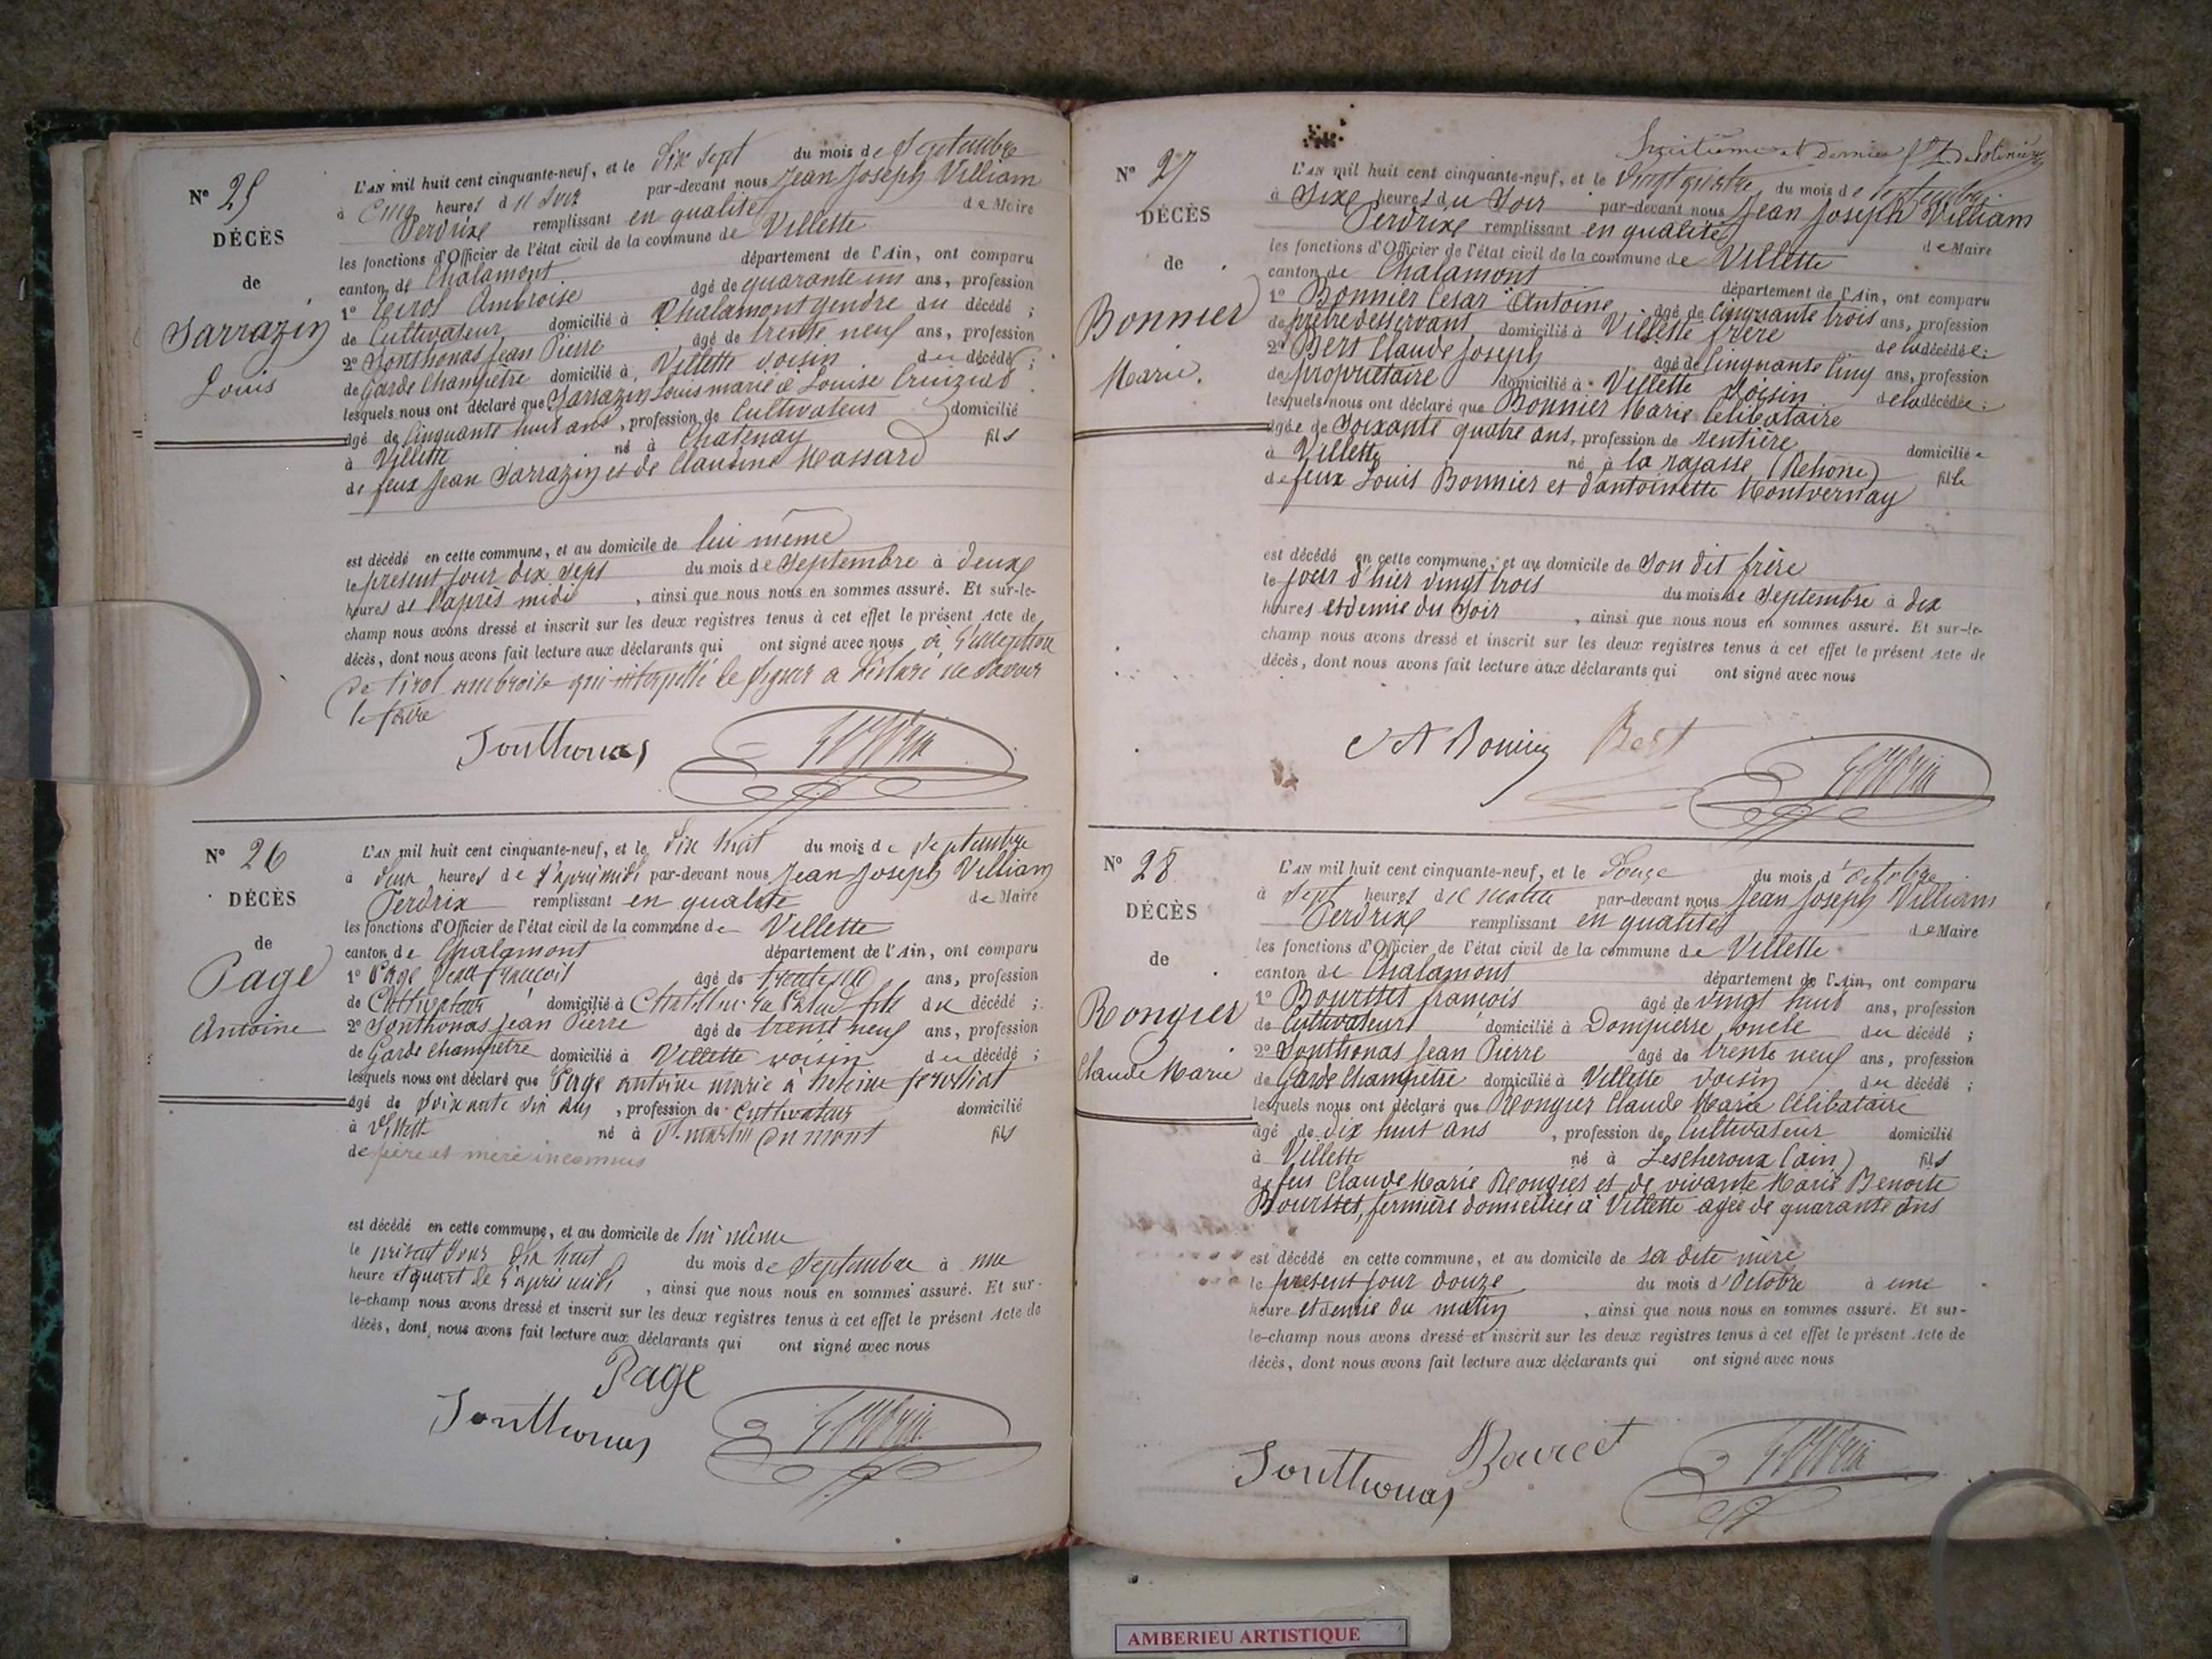 N° 25
DÉCÈS
de
Sarrazin
Louis
L'AN mil huit cent cinquante-neuf, et le Dix Sept du mois de Septembre
à Cinq heures du Soir par-devant nous Jean Joseph Villiam
Perdrixe remplissant en qualité de Maire
les fonctions d'Officier de l'état civil de la commune de Villette
canton de Chalamont département de l'Ain, ont comparu
1° Ambroise âgé de quarante un ans, profession
de Cultivateur domicilié à Chalamont gendre du décédé ;
2° Jonthonas Jean Pierre âgé de trente neuf ans, profession
de Garde Champêtre domicilié à Villette voisin du décédé ;
lesquels nous ont déclaré que Sarrazin Louis marié à Louise
âgé de Cinquante huit ans, profession de Cultivateur domicilié
à Villette né à Chatenay fils
de feux Jean Sarrazin et de Claudine Massard
est décédé en cette commune, et au domicile de lui même
le présent jour dix sept du mois de Septembre à deux
heures de l'après midi, ainsi que nous nous en sommes assuré. Et sur-le-
champ nous avons dressé et inscrit sur les deux registres tenus à cet effet le présent Acte de
décès, dont nous avons fait lecture aux déclarants qui ont signé avec nous à l'exception
de Tirol ambroise qui interpellé de signer a déclaré ne savoir
le faire
Jonthonas
N° 26
DÉCÈS
de
Page
Antoine
L'AN mil huit cent cinquante-neuf, et le Dix huit du mois de Septembre
à deux heures de l'après midi par-devant nous Jean Joseph Villiam
Perdrix remplissant en qualité de Maire
les fonctions d'Officier de l'état civil de la commune de Villette
canton de Chalamont département de l'Ain, ont comparu
1° Page Jean François âgé de ans, profession
de Cultivateur domicilié à Chatillon la Palud fils du décédé ;
2° Jonthonas Jean Pierre âgé de trente neuf ans, profession
de Garde Champêtre domicilié à Villette voisin du décédé ;
lesquels nous ont déclaré que Page antoine marié à
âgé de Soixante dix ans, profession de Cultivateur domicilié
à Villett né à St martin du mont fils
de père et mère inconnus
est décédé en cette commune, et au domicile de lui même
le présent jour dix huit du mois de Septembre à une
heure et quart de l'après midi, ainsi que nous nous en sommes assuré. Et sur-
le-champ nous avons dressé et inscrit sur les deux registres tenus à cet effet le présent Acte de
décès, dont nous avons fait lecture aux déclarants qui ont signé avec nous
Page
Jonthonas
huitième et dernier
N° 27
DÉCÈS
de
Bonnier
Marie.
L'AN mil huit cent cinquante-neuf, et le Vingt quatre du mois de Septembre
à Sixe heures du Soir par-devant nous Jean Joseph Villiam
Perdrixe remplissant en qualité de Maire
les fonctions d'Officier de l'état civil de la commune de Villette
canton de Chalamont département de l'Ain, ont comparu
1° Bonnier César Antoine âgé de Cinquante trois ans, profession
de prêtre desservant domicilié à Villette frère de la décédée ;
2° Bert Claude Joseph âgé de Cinquante Cinq ans, profession
de propriétaire domicilié à Villette Voisin de la décédée ;
lesquels nous ont déclaré que Bonnier Marie Célibataire
âgée de Soixante quatre ans, profession de Rentière domiciliée
à Villette né à la rajasse (Rehône) fille
de feux Louis Bonnier et d'antoinette Montvernay
est décédé en cette commune, et au domicile de Son dit frère
le jour d'hier vingt trois du mois de Septembre à dix
heures et demie du Soir, ainsi que nous nous en sommes assuré. Et sur-le-
champ nous avons dressé et inscrit sur les deux registres tenus à cet effet le présent Acte de
décès, dont nous avons fait lecture aux déclarants qui ont signé avec nous
Bert
N° 28
DÉCÈS
de
Rongier
Claude Marie
L'AN mil huit cent cinquante-neuf, et le Douze du mois d'Octobre
à Sept heures du matin par-devant nous Jean Joseph Villiam
Perdrixe remplissant en qualité de Maire
les fonctions d'Officier de l'état civil de la commune de Villette
canton de Chalamont département de l'Ain, ont comparu
1° Boursset françois âgé de vingt huit ans, profession
de Cultivateur domicilié à Dompierre oncle du décédé ;
2° Jonthonas Jean Pierre âgé de trente neuf ans, profession
de Garde Champêtre domicilié à Villette voisin du décédé ;
lesquels nous ont déclaré que Rongier Claude Marie Célibataire
âgé de dix huit ans, profession de Cultivateur domicilié
à Villette né à Lescheroux (ain) fils
de feu Claude Marie Rongier et de vivante Marie Benoite
Boursset, fermière domiciliée à Villette agée de quarante ans
est décédé en cette commune, et au domicile de sa dite mère
le présent jour douze du mois d'Octobre à une
heure et demie du matin, ainsi que nous nous en sommes assuré. Et sur-
le-champ nous avons dressé et inscrit sur les deux registres tenus à cet effet le présent Acte de
décès, dont nous avons fait lecture aux déclarants qui ont signé avec nous
Jonthonas
AMBERIEU ARTISTIQUE